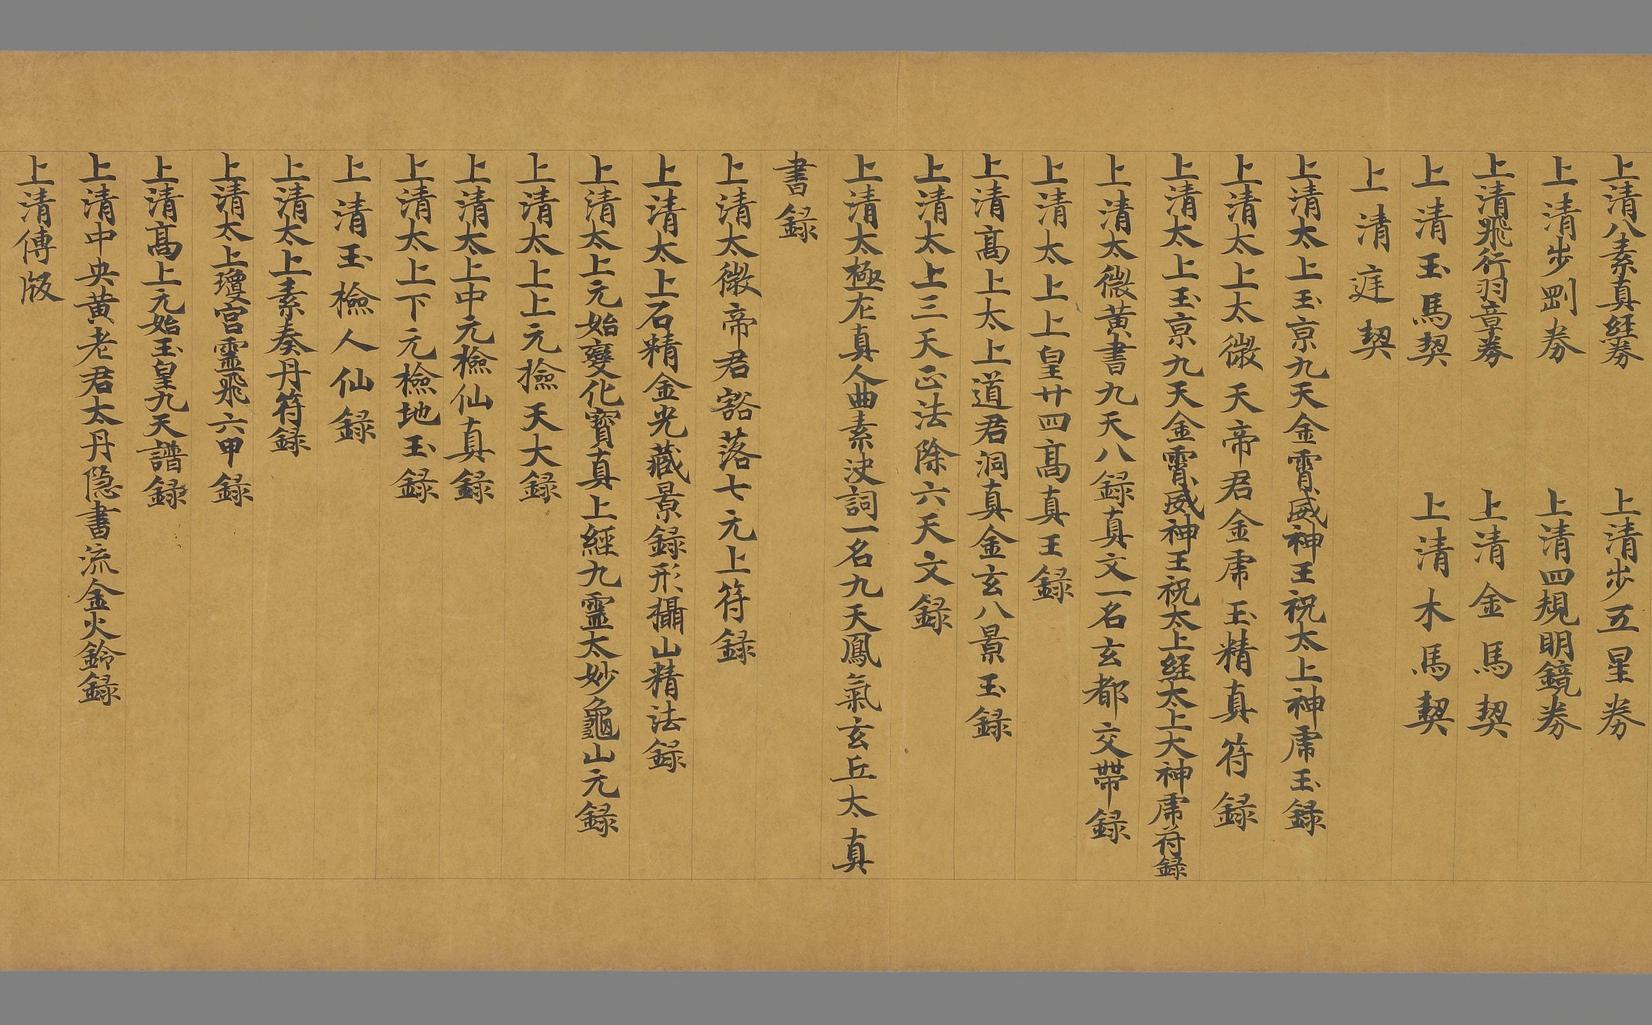 上清八素真經券　上清步五星券
上清步罡券　上清四規明鏡券
上清飛行羽章券　上清金馬契
上清玉馬契　上清木馬契
上清庭契
上清太上玉京九天金霄威神王祝太上神虎玉録
上清太上太微天帝君金虎玉精真符録
上清太上玉京九天金霄威神王祝太上經太上大神虎符録
上清太微黃書九天八録真文一名玄都交帶録
上清太上上皇廿四高真王録
上清高上太上道君洞真金玄八景玉録
上清太上三天正法除六天文録
上清太極左真人曲素決詞一名九天鳳氣玄丘太真
書録
上清太微帝君豁落七元上符録
上清太上石精金光藏景録形攝山精法録
上清太上元始變化寶真上經九靈太妙龜山元録
上清太上上元撿天大録
上清太上中元檢仙真録
上清太上下元檢地玉録
上清玉檢人仙録
上清太上素奏丹符録
上清太上瓊宮靈飛六甲録
上清高上元始玉皇九天譜録
上清中央黃老君太丹隱書流金火鈴録
上清傳版